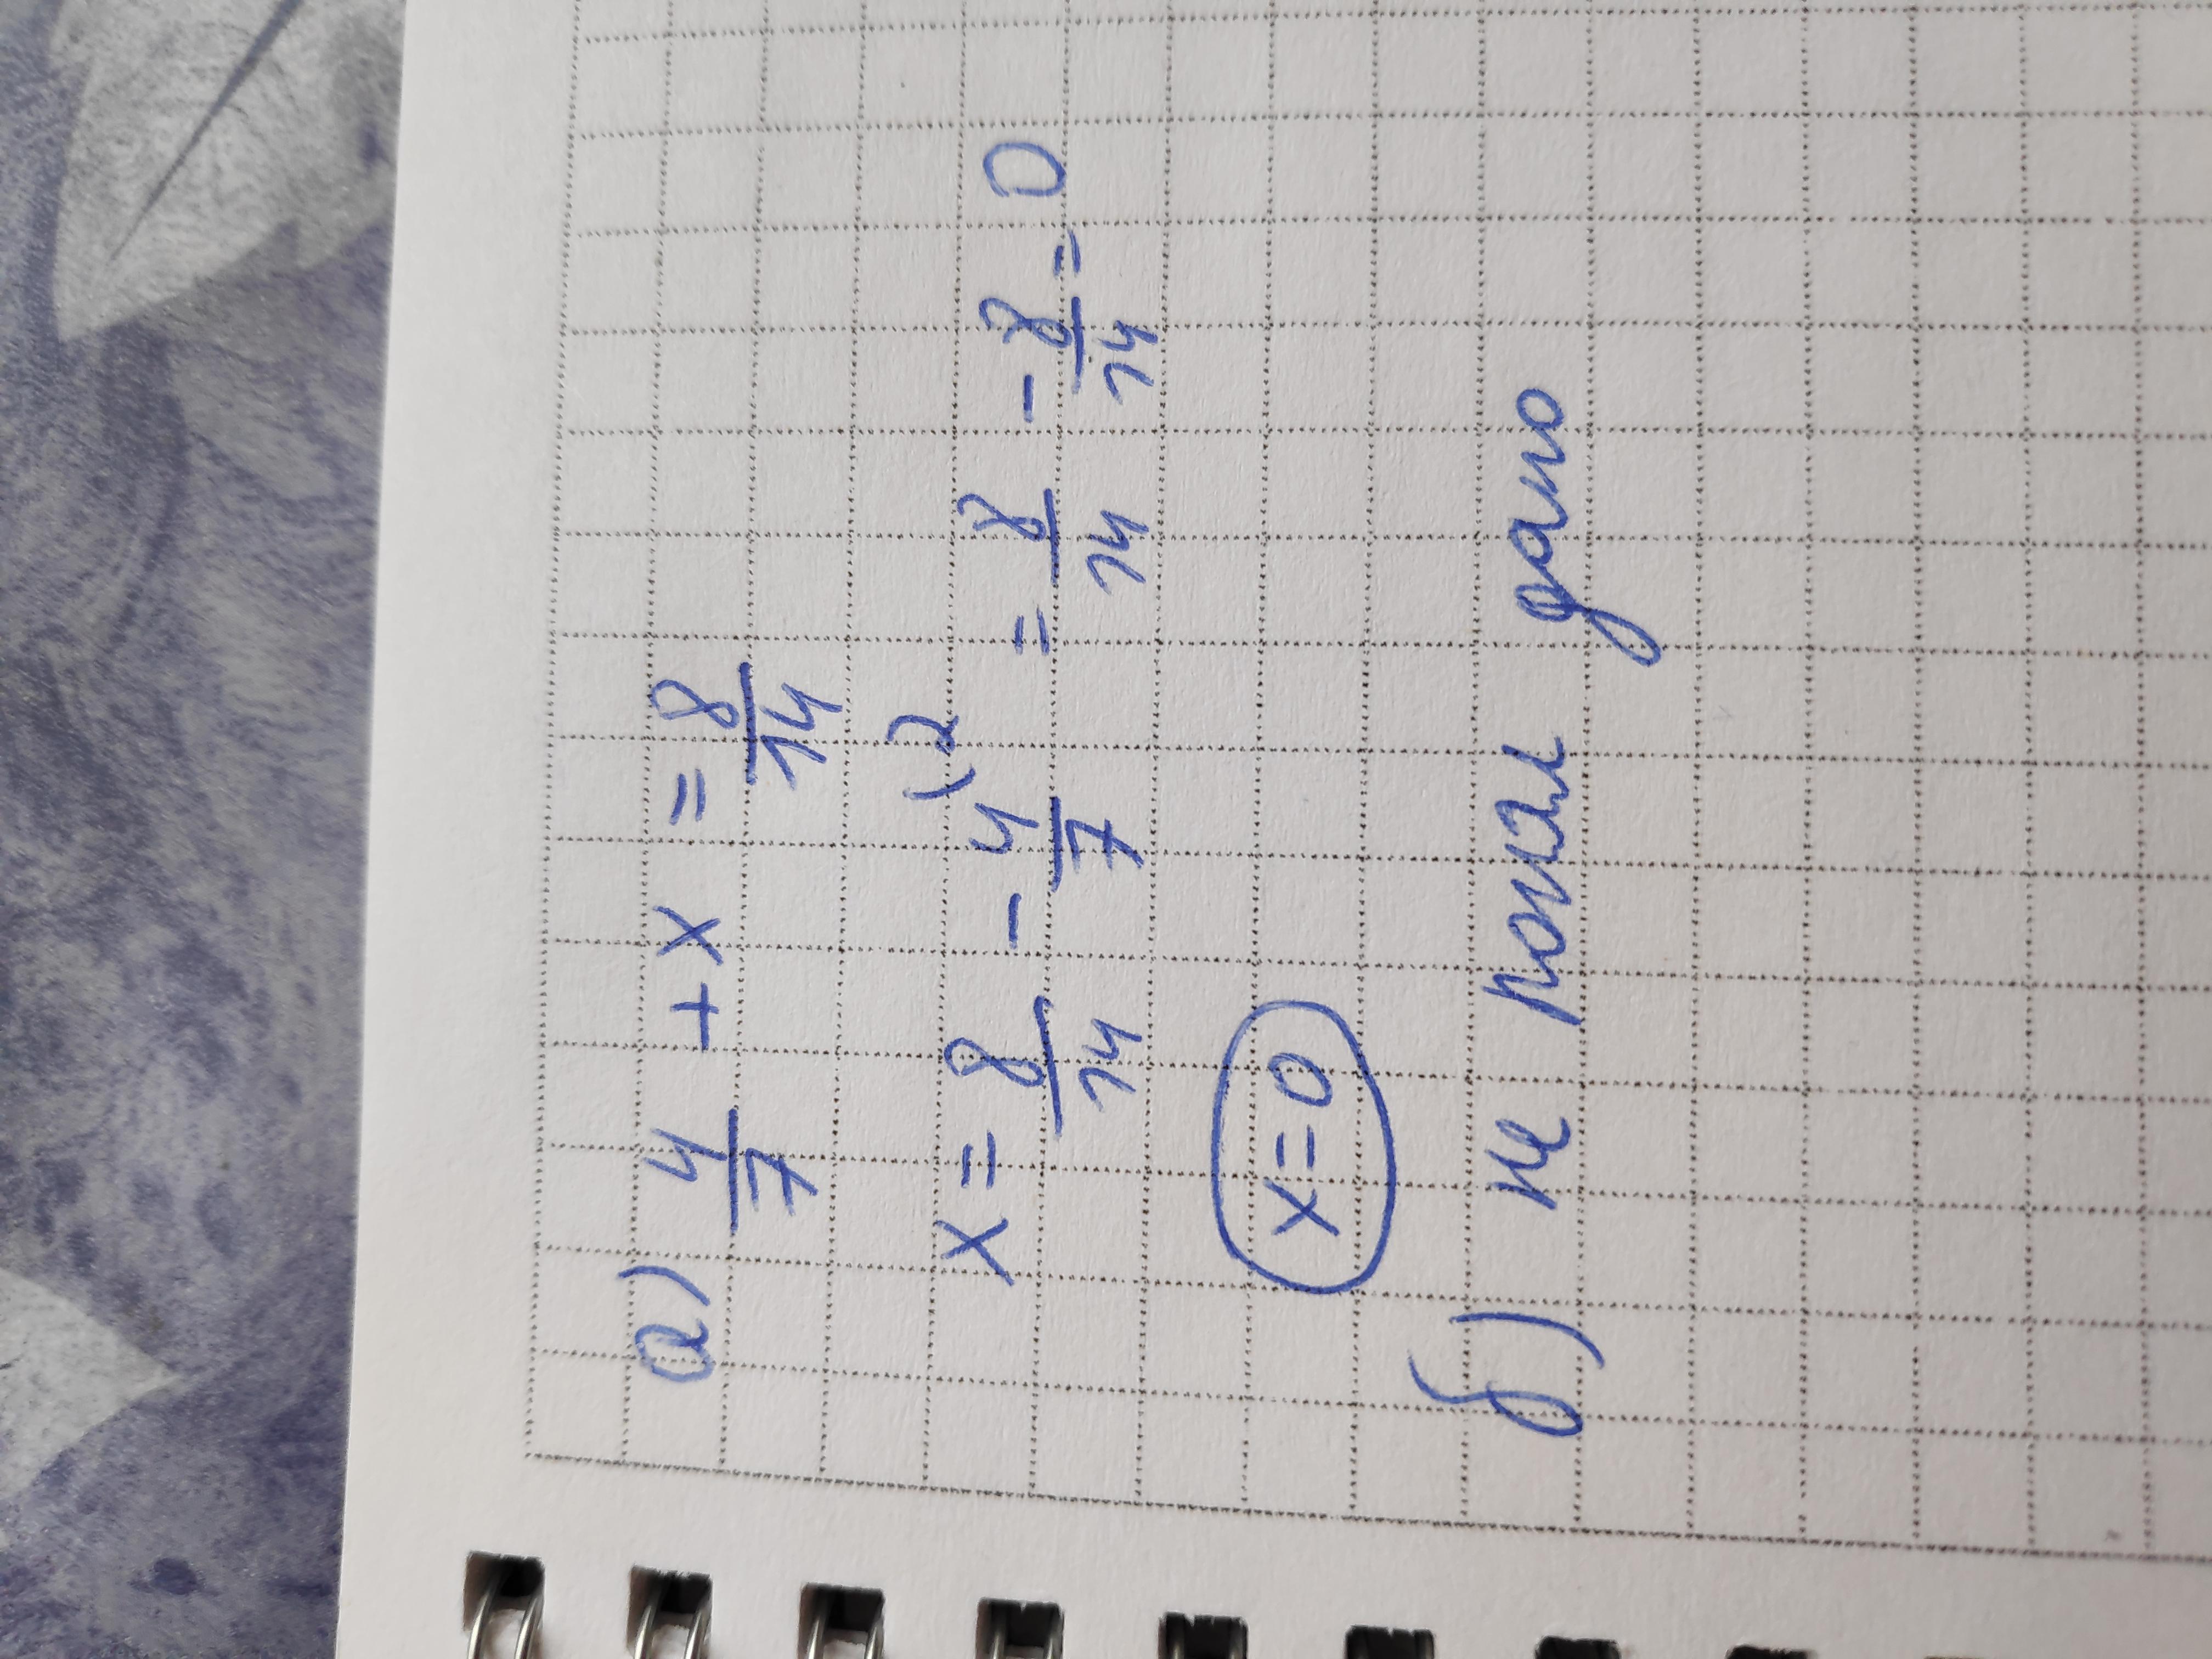 а) 4/7 + x = 8/14
x = 8/14 - 4/7 (2 = 8/14 - 8/14 = 0
x=0
б) не понял дано